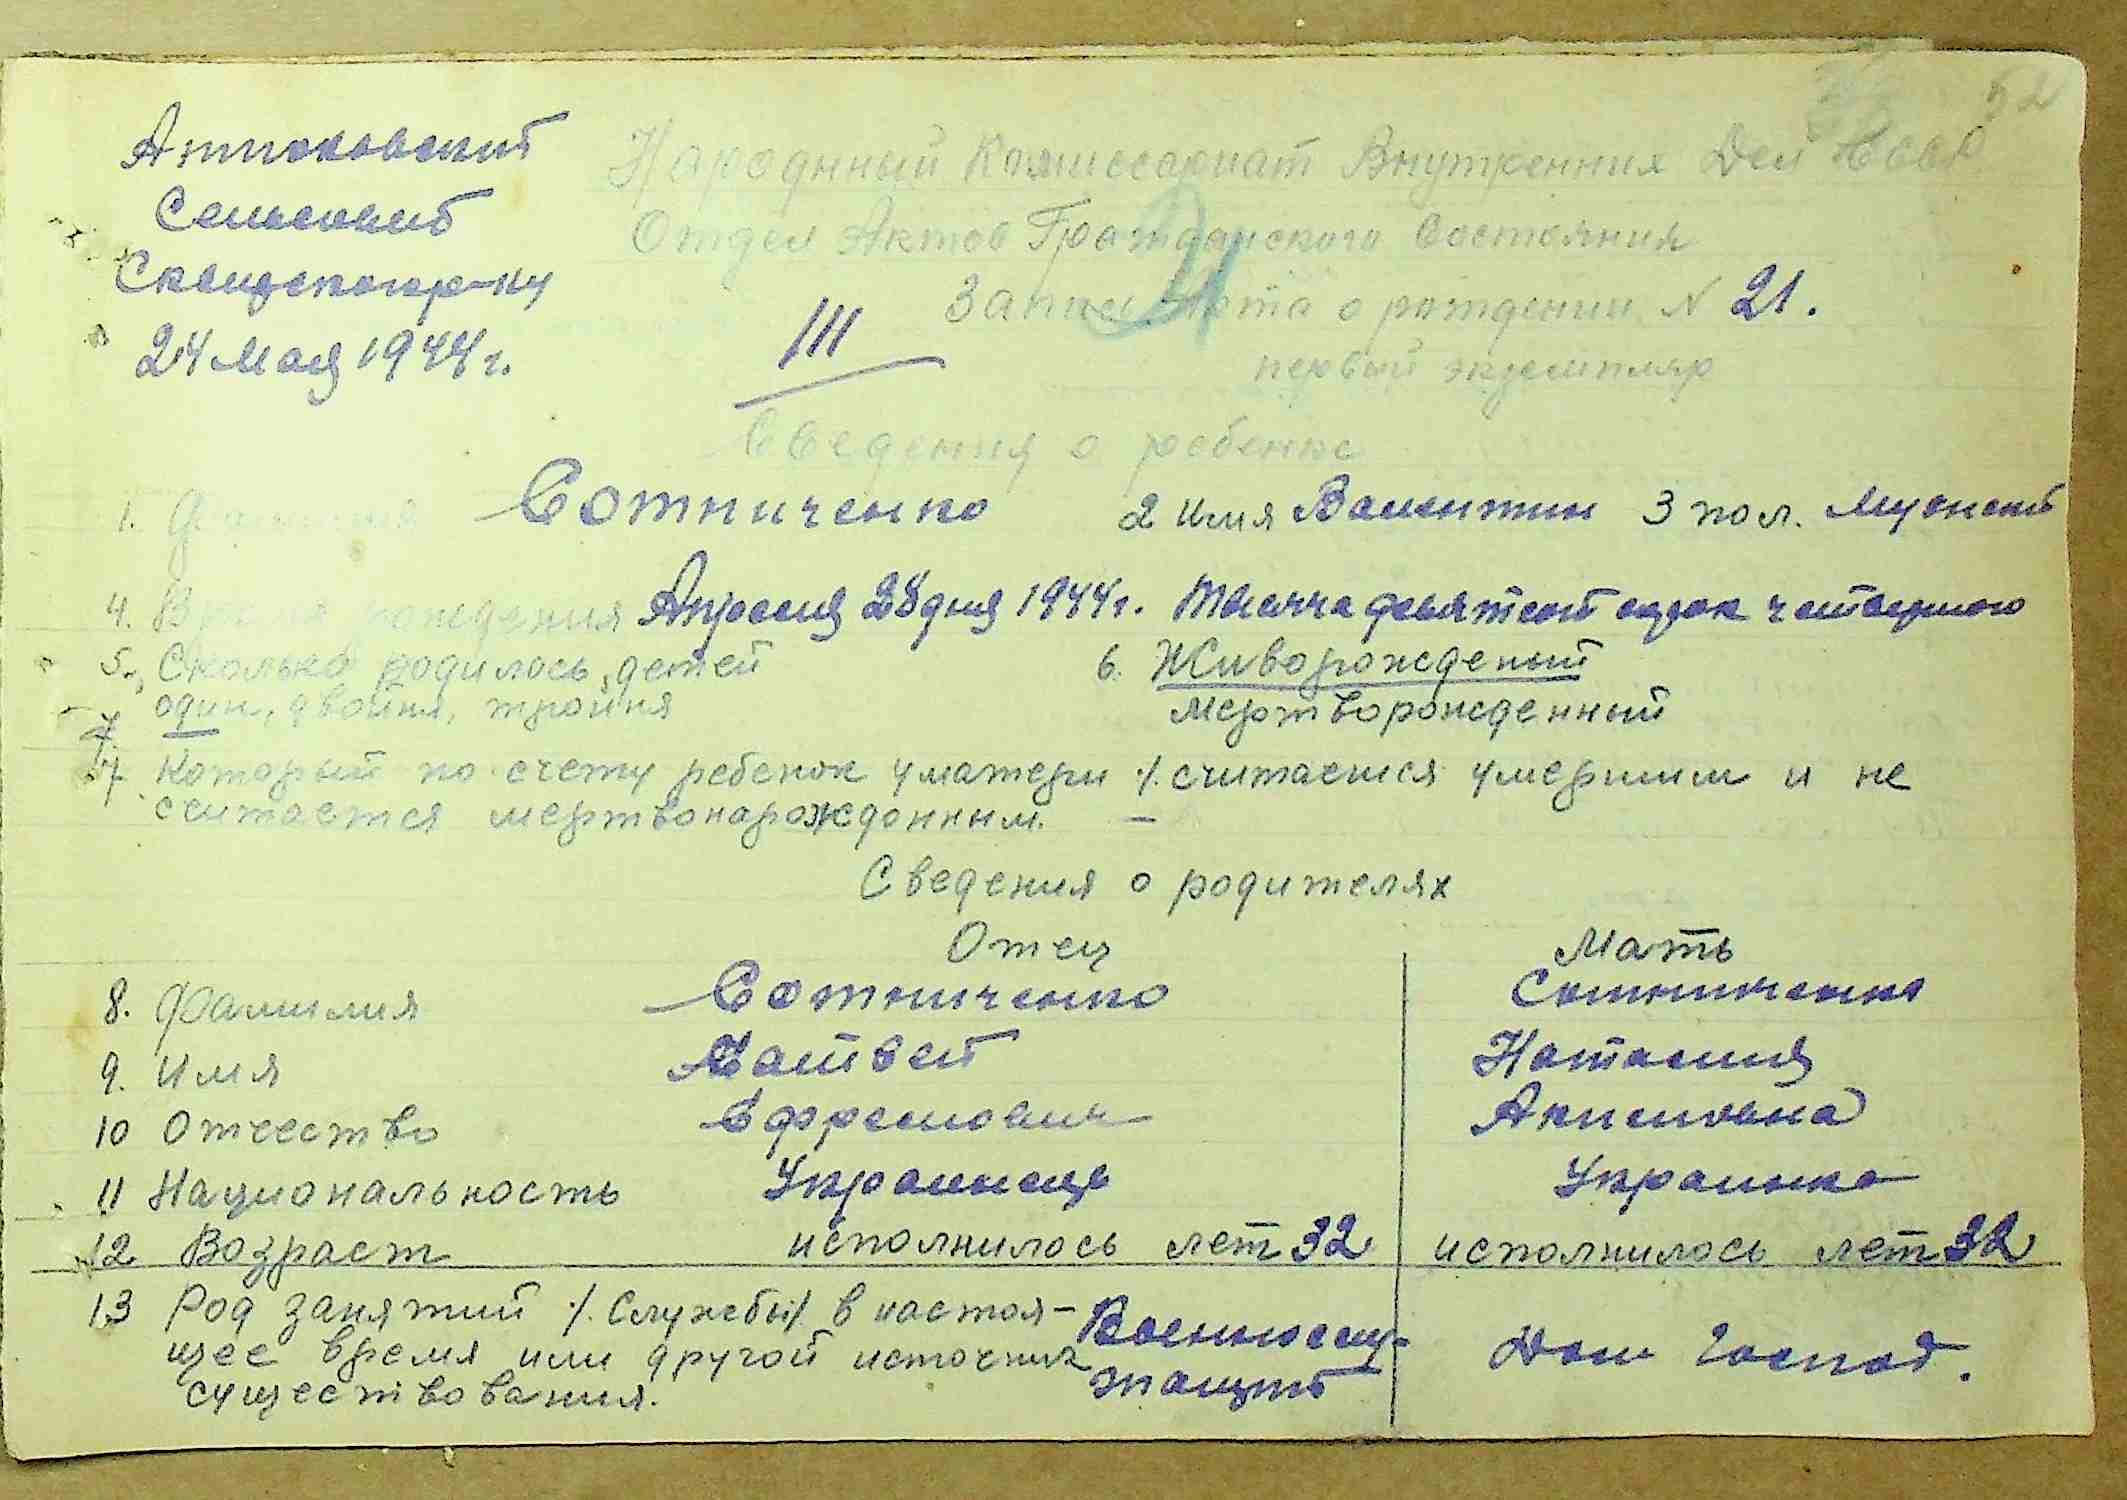 Сельсовет
24 мая 1944 г.
52
Народный Комиссариат Внутренних Дел СССР
Отдел Актов Гражданского Состояния
Запись Акта о рождении N 21.
III
первый экземпляр
Сведения о ребенке
1. Фамилия Сотниченко 2 Имя Валентин 3 пол. Мужской
4. Время рождения Апреля 28 дня 1944 г. Тысяча девятсот сорок четвертого
5. Сколько родилось детей 6. Живорожденый
один, двойня, тройня мертворожденный
7 Который по счету ребенок у матери /. считается умершим и не
считается мертвонарожденным. —
Сведения о родителях
Отец Мать
8. Фамилия Сотниченко Сотниченко
9. Имя Матвей Наталия
10 Отчество Ефремович
11 Национальность Украинець Украинка
12 Возраст исполнилось лет 32 исполнилось лет 32
13 Род занятий /. Службы/. в настоя- Военнослу-
щее время или другой источник жащий Дом Господ.
существования.